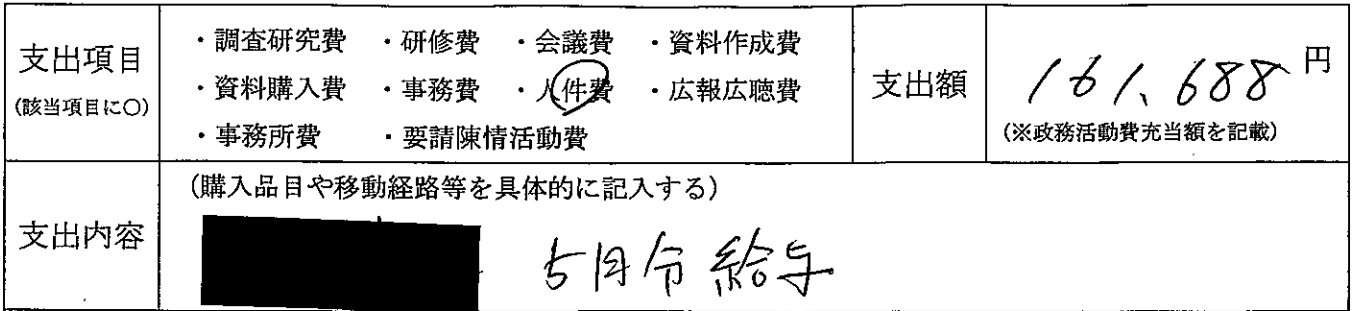 支出項目
(該当項目に○)
・調査研究費 ・研修費 ・会議費 ・資料作成費
・資料購入費 ・事務費 ・人件費 ・広報広聴費
・事務所費 ・要請陳情活動費
支出額
161,688円
(※政務活動費充当額を記載)
支出内容
(購入品目や移動経路等を具体的に記入する)
5月分給与